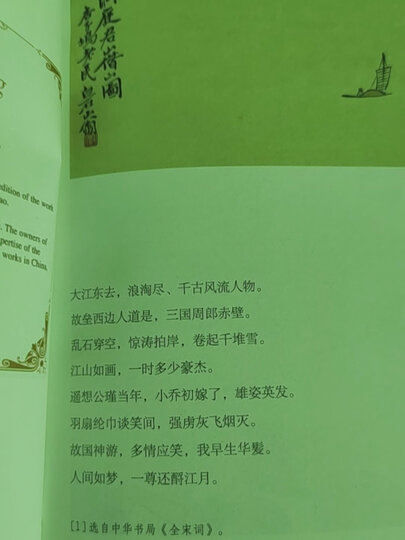 dition of the work
ao.
. The owners of
pertise of the
works in China,
大江东去，浪淘尽、千古风流人物。
故垒西边人道是，三国周郎赤壁。
乱石穿空，惊涛拍岸，卷起千堆雪。
江山如画，一时多少豪杰。
遥想公瑾当年，小乔初嫁了，雄姿英发。
羽扇纶巾谈笑间，强虏灰飞烟灭。
故国神游，多情应笑，我早生华髪。
人间如梦，一尊还酹江月。
[1]选自中华书局《全宋词》。